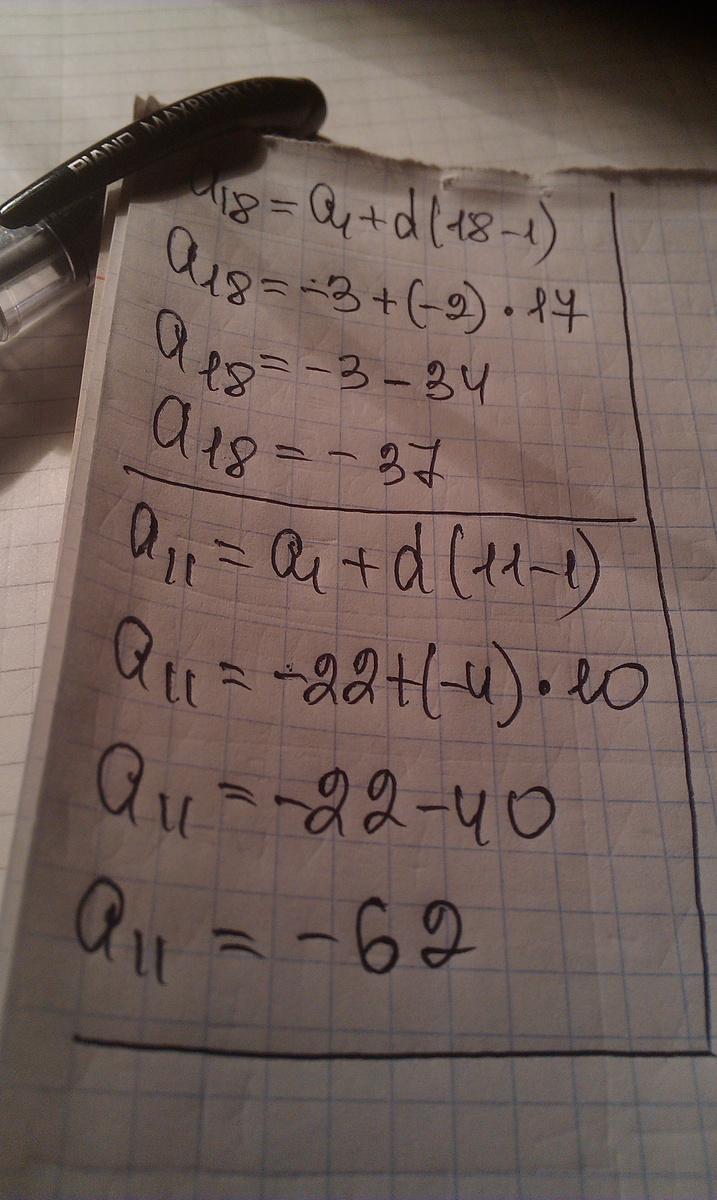 PIANO MAXRITER
a₁₈ = a₁ + d(18-1)
a₁₈ = -3 + (-2) · 17
a₁₈ = -3 - 34
a₁₈ = - 37
a₁₁ = a₁ + d(11-1)
a₁₁ = -22+(-4) · 10
a₁₁ = -22-40
a₁₁ = -62